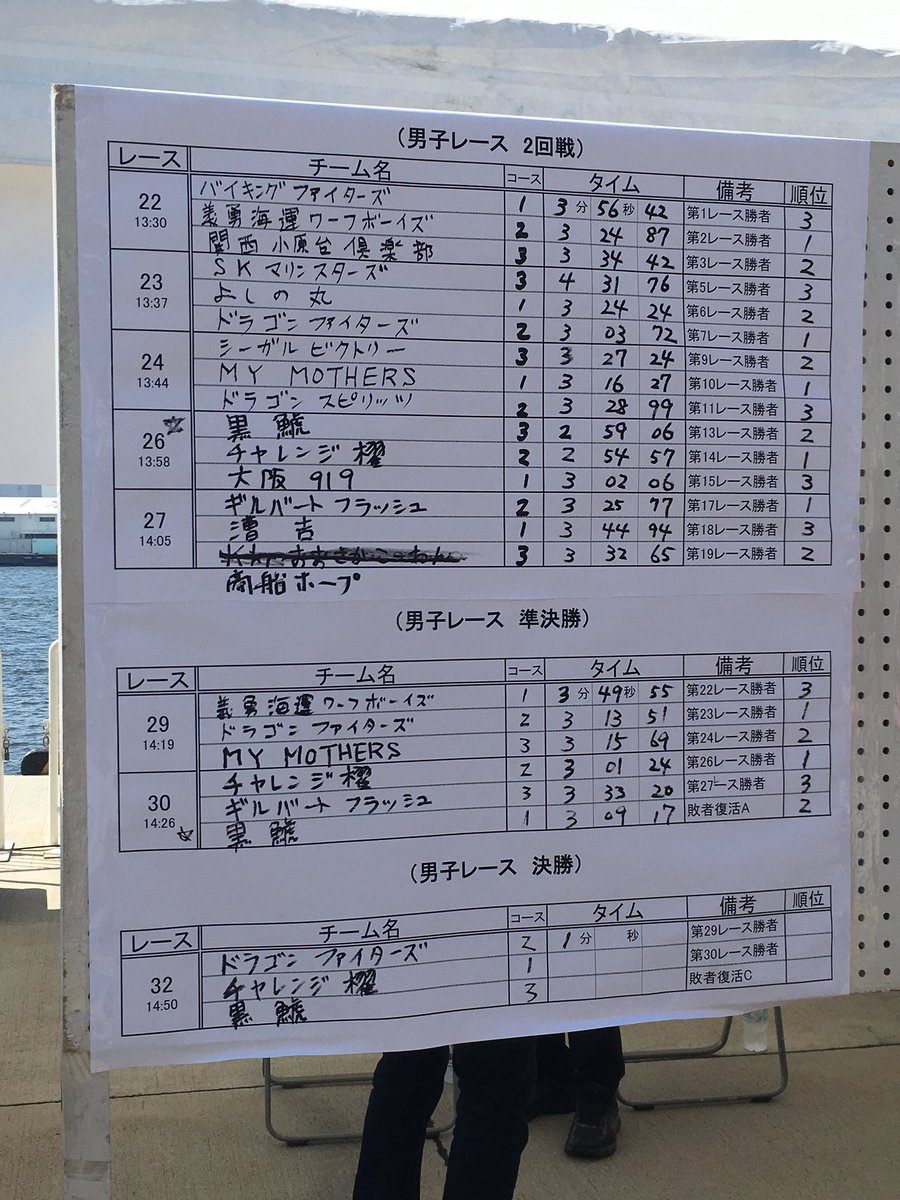 (男子レース 2回戦)
レース チーム名 コース タイム 備考 順位
22 13:30
バイキングファイターズ 1 3分 56秒 42 第1レース勝者 3
義勇海運ワーフボーイズ 2 3 24 87 第2レース勝者 1
関西小原台倶楽部 3 3 34 42 第3レース勝者 2
23 13:37
SKマリンスターズ 3 4 31 76 第5レース勝者 3
よしの丸 1 3 24 24 第6レース勝者 2
ドラゴンファイターズ 2 3 03 72 第7レース勝者 1
24 13:44
シーガルビクトリー 3 3 27 24 第9レース勝者 2
MY MOTHERS 1 3 16 27 第10レース勝者 1
ドラゴンスピリッツ 2 3 28 99 第11レース勝者 3
26☆ 13:58
黒鯱 3 2 59 06 第13レース勝者 2
チャレンジ櫂 2 2 54 57 第14レース勝者 1
大阪919 1 3 02 06 第15レース勝者 3
27 14:05
ギルバートフラッシュ 2 3 25 77 第17レース勝者 1
漕吉 1 3 44 94 第18レース勝者 3
3 3 32 65 第19レース勝者 2
商船ホープ
(男子レース 準決勝)
レース チーム名 コース タイム 備考 順位
29 14:19
義勇海運ワーフボーイズ 1 3分 49秒 55 第22レース勝者 3
ドラゴンファイターズ 2 3 13 51 第23レース勝者 1
MY MOTHERS 3 3 15 69 第24レース勝者 2
30 14:26☆
チャレンジ櫂 2 3 01 24 第26レース勝者 1
ギルバートフラッシュ 3 3 33 20 第27レース勝者 3
黒鯱 1 3 09 17 敗者復活A 2
(男子レース 決勝)
レース チーム名 コース タイム 備考 順位
32 14:50
ドラゴンファイターズ 2 1分 秒 第29レース勝者
チャレンジ櫂 1 第30レース勝者
黒鯱 3 敗者復活C